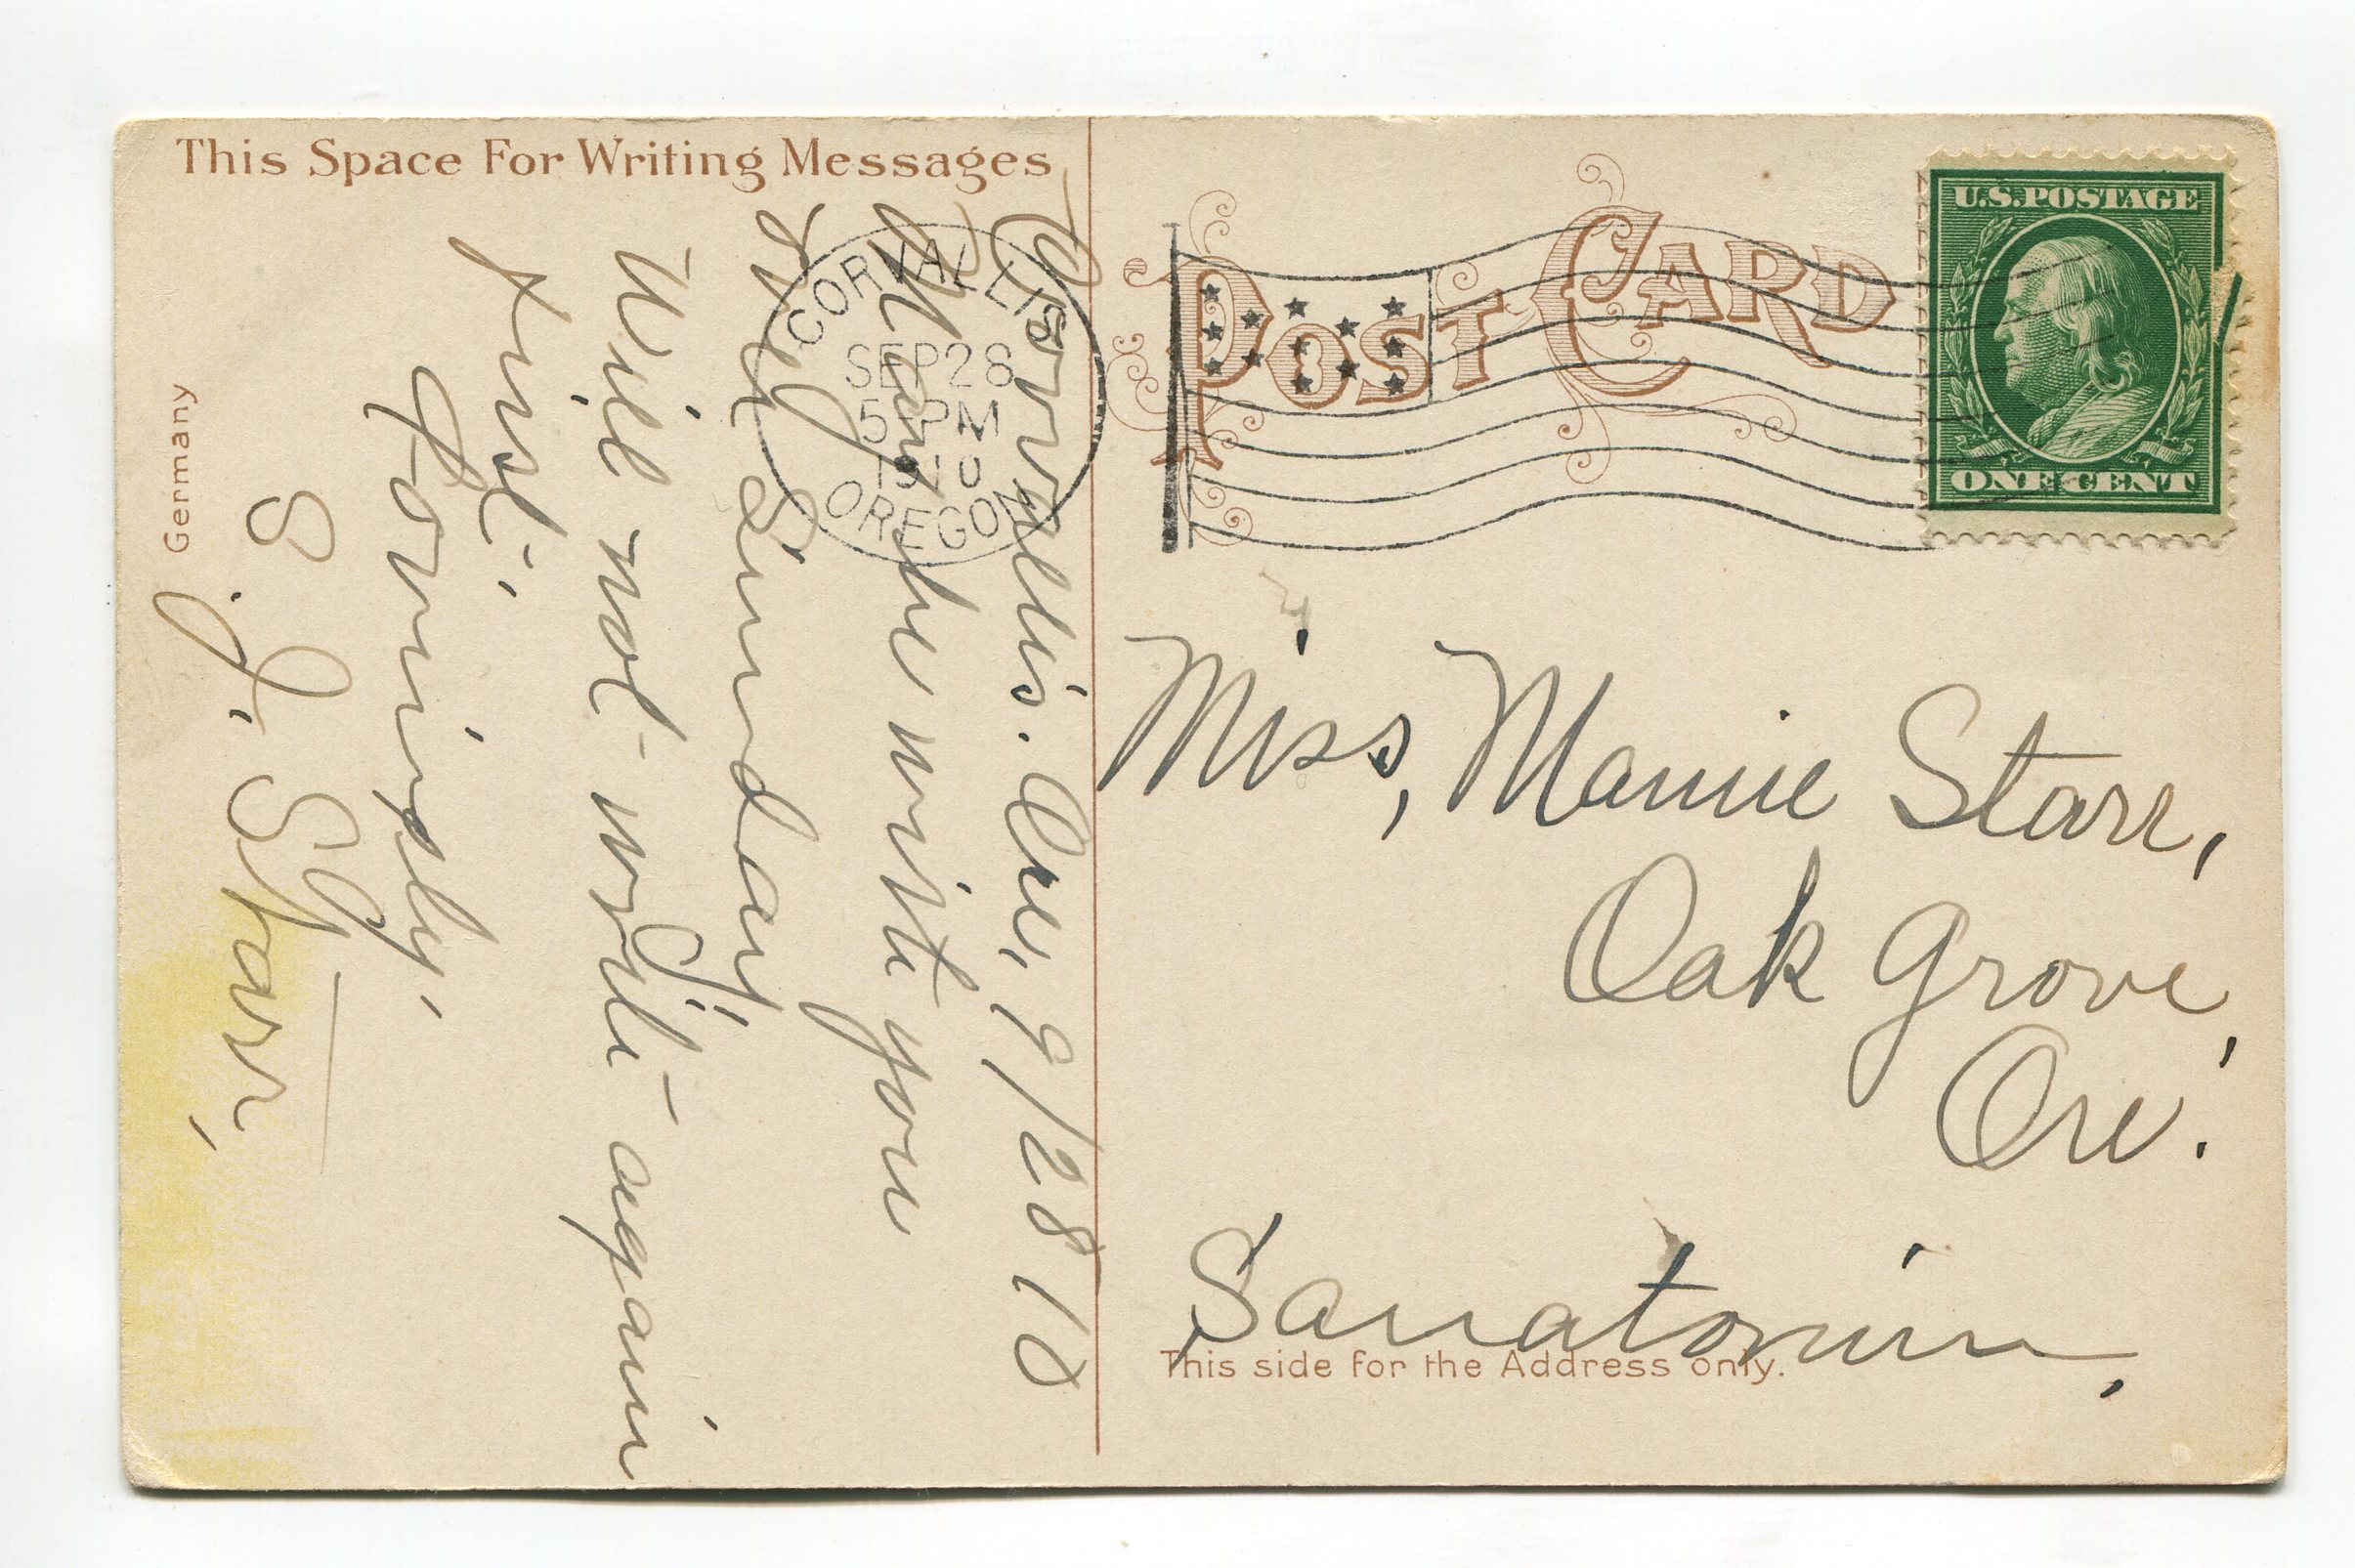 This Space For Writing Messages
Corvallis. Ore, 9/28 10
May be with you
Sunday.
Will not write again
first.
Lovingly,
S J. Starr,
Germany
CORVALLIS
SEP 28
5 PM
1910
OREGON
POST CARD
U.S. POSTAGE
ONE CENT
Miss, Mamie Starr,
Oak Grove,
Ore.
Sanatorium,
This side for the Address only.